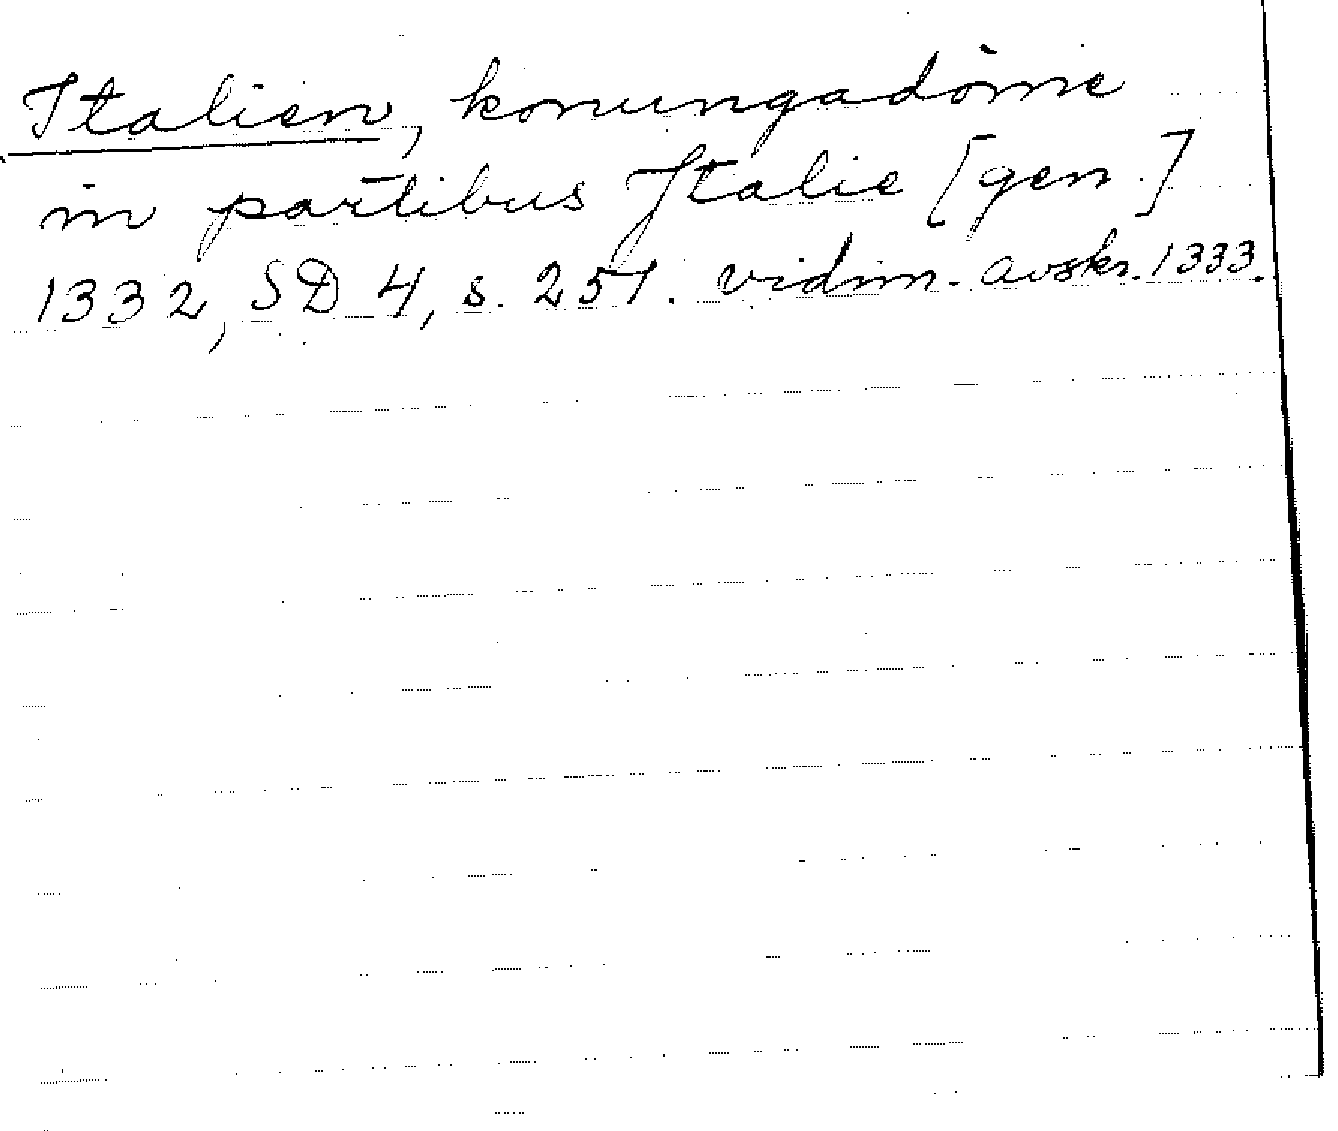 Italien, konungadöme
in partibus Italie [gen.]
1332, SD 4, s. 251. vidim. avskr. 1333.